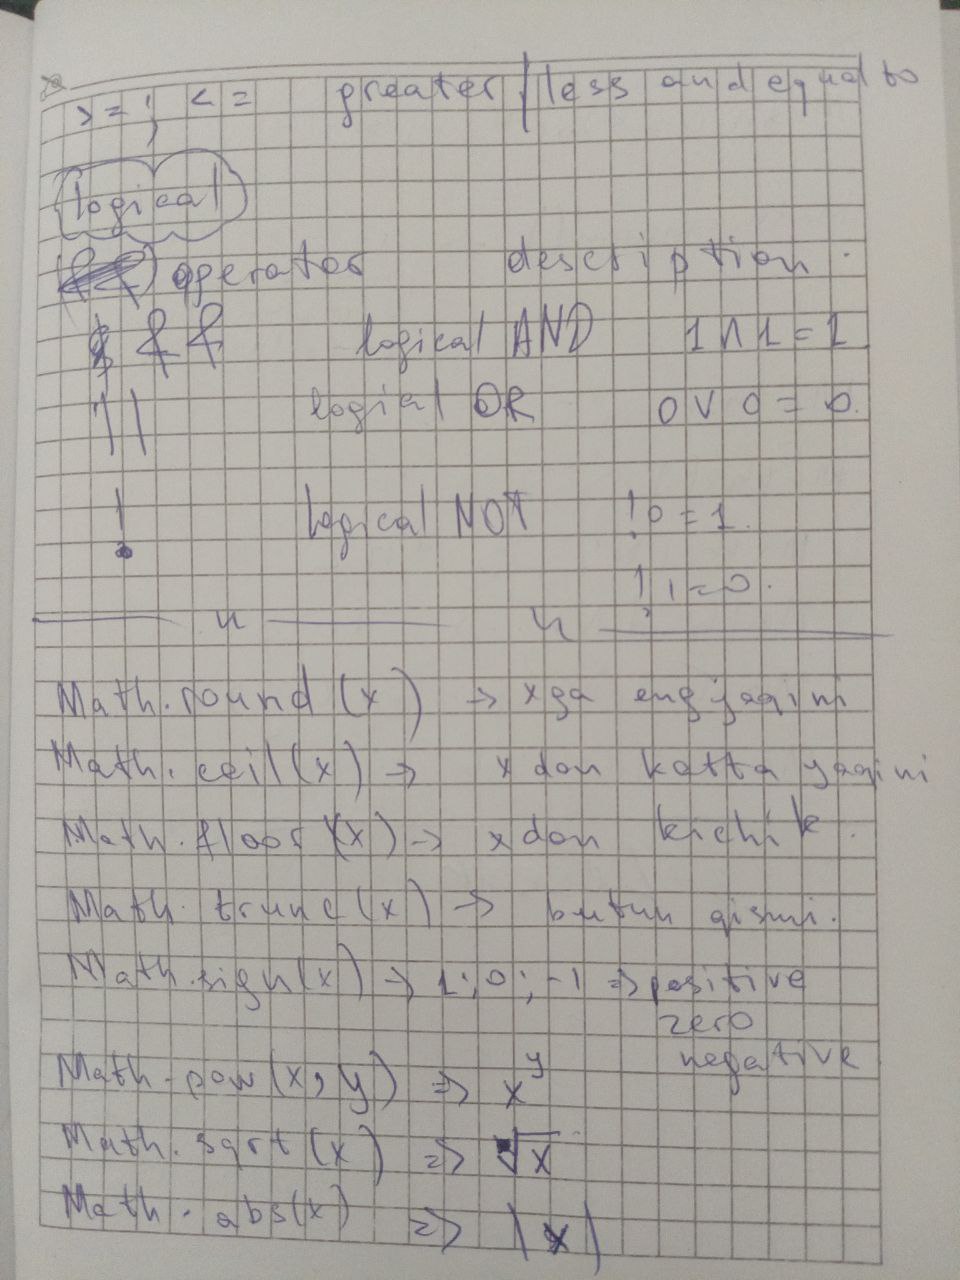 >= ; <= greater / less and equal to
logical
operator description.
&& logical AND 1 ∧ 1 = 1
|| logial OR 0 ∨ 0 = 0.
! logical NOT !0 = 1.
!1 = 0.
Math.round(x) -> xga eng yaqini
Math.ceil(x) -> xdan katta yaqini
Math.floor(x) -> xdan kichik.
Math.trunc(x) -> butun qismi.
Math.sign(x) -> 1; 0; -1 => positive
zero
negative
Math.pow(x, y) => x^y
Math.sqrt(x) => √x
Math.abs(x) => |x|